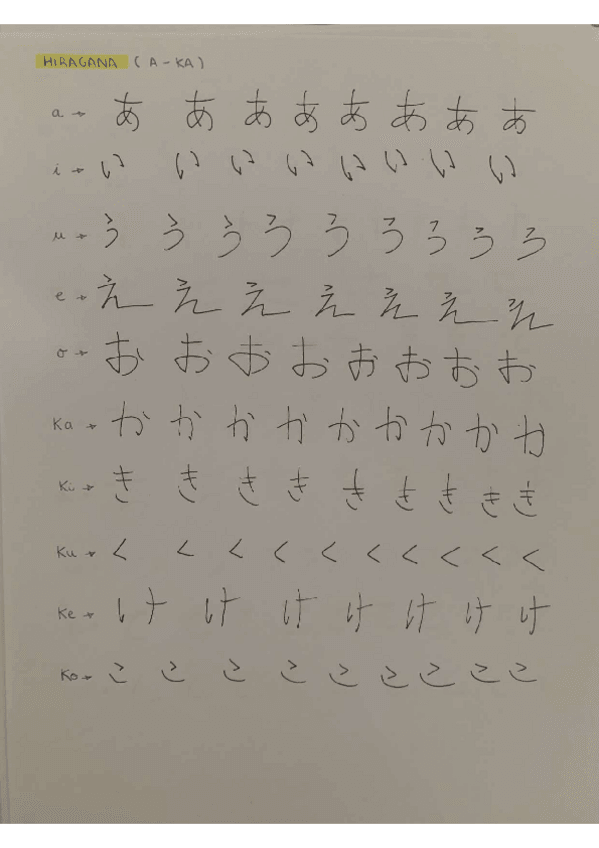 HIRAGANA (A-KA)
a → あ あ あ あ あ あ あ あ
i → い い い い い い い い
u → う う う う う う う う う
e → え え え え え え え
o → お お お お お お お お
Ka → か か か か か か か か か
Ki → き き き き き き き き き
Ku → く く く く く く く く く く
Ke → け け け け け け け
Ko → こ こ こ こ こ こ こ こ こ